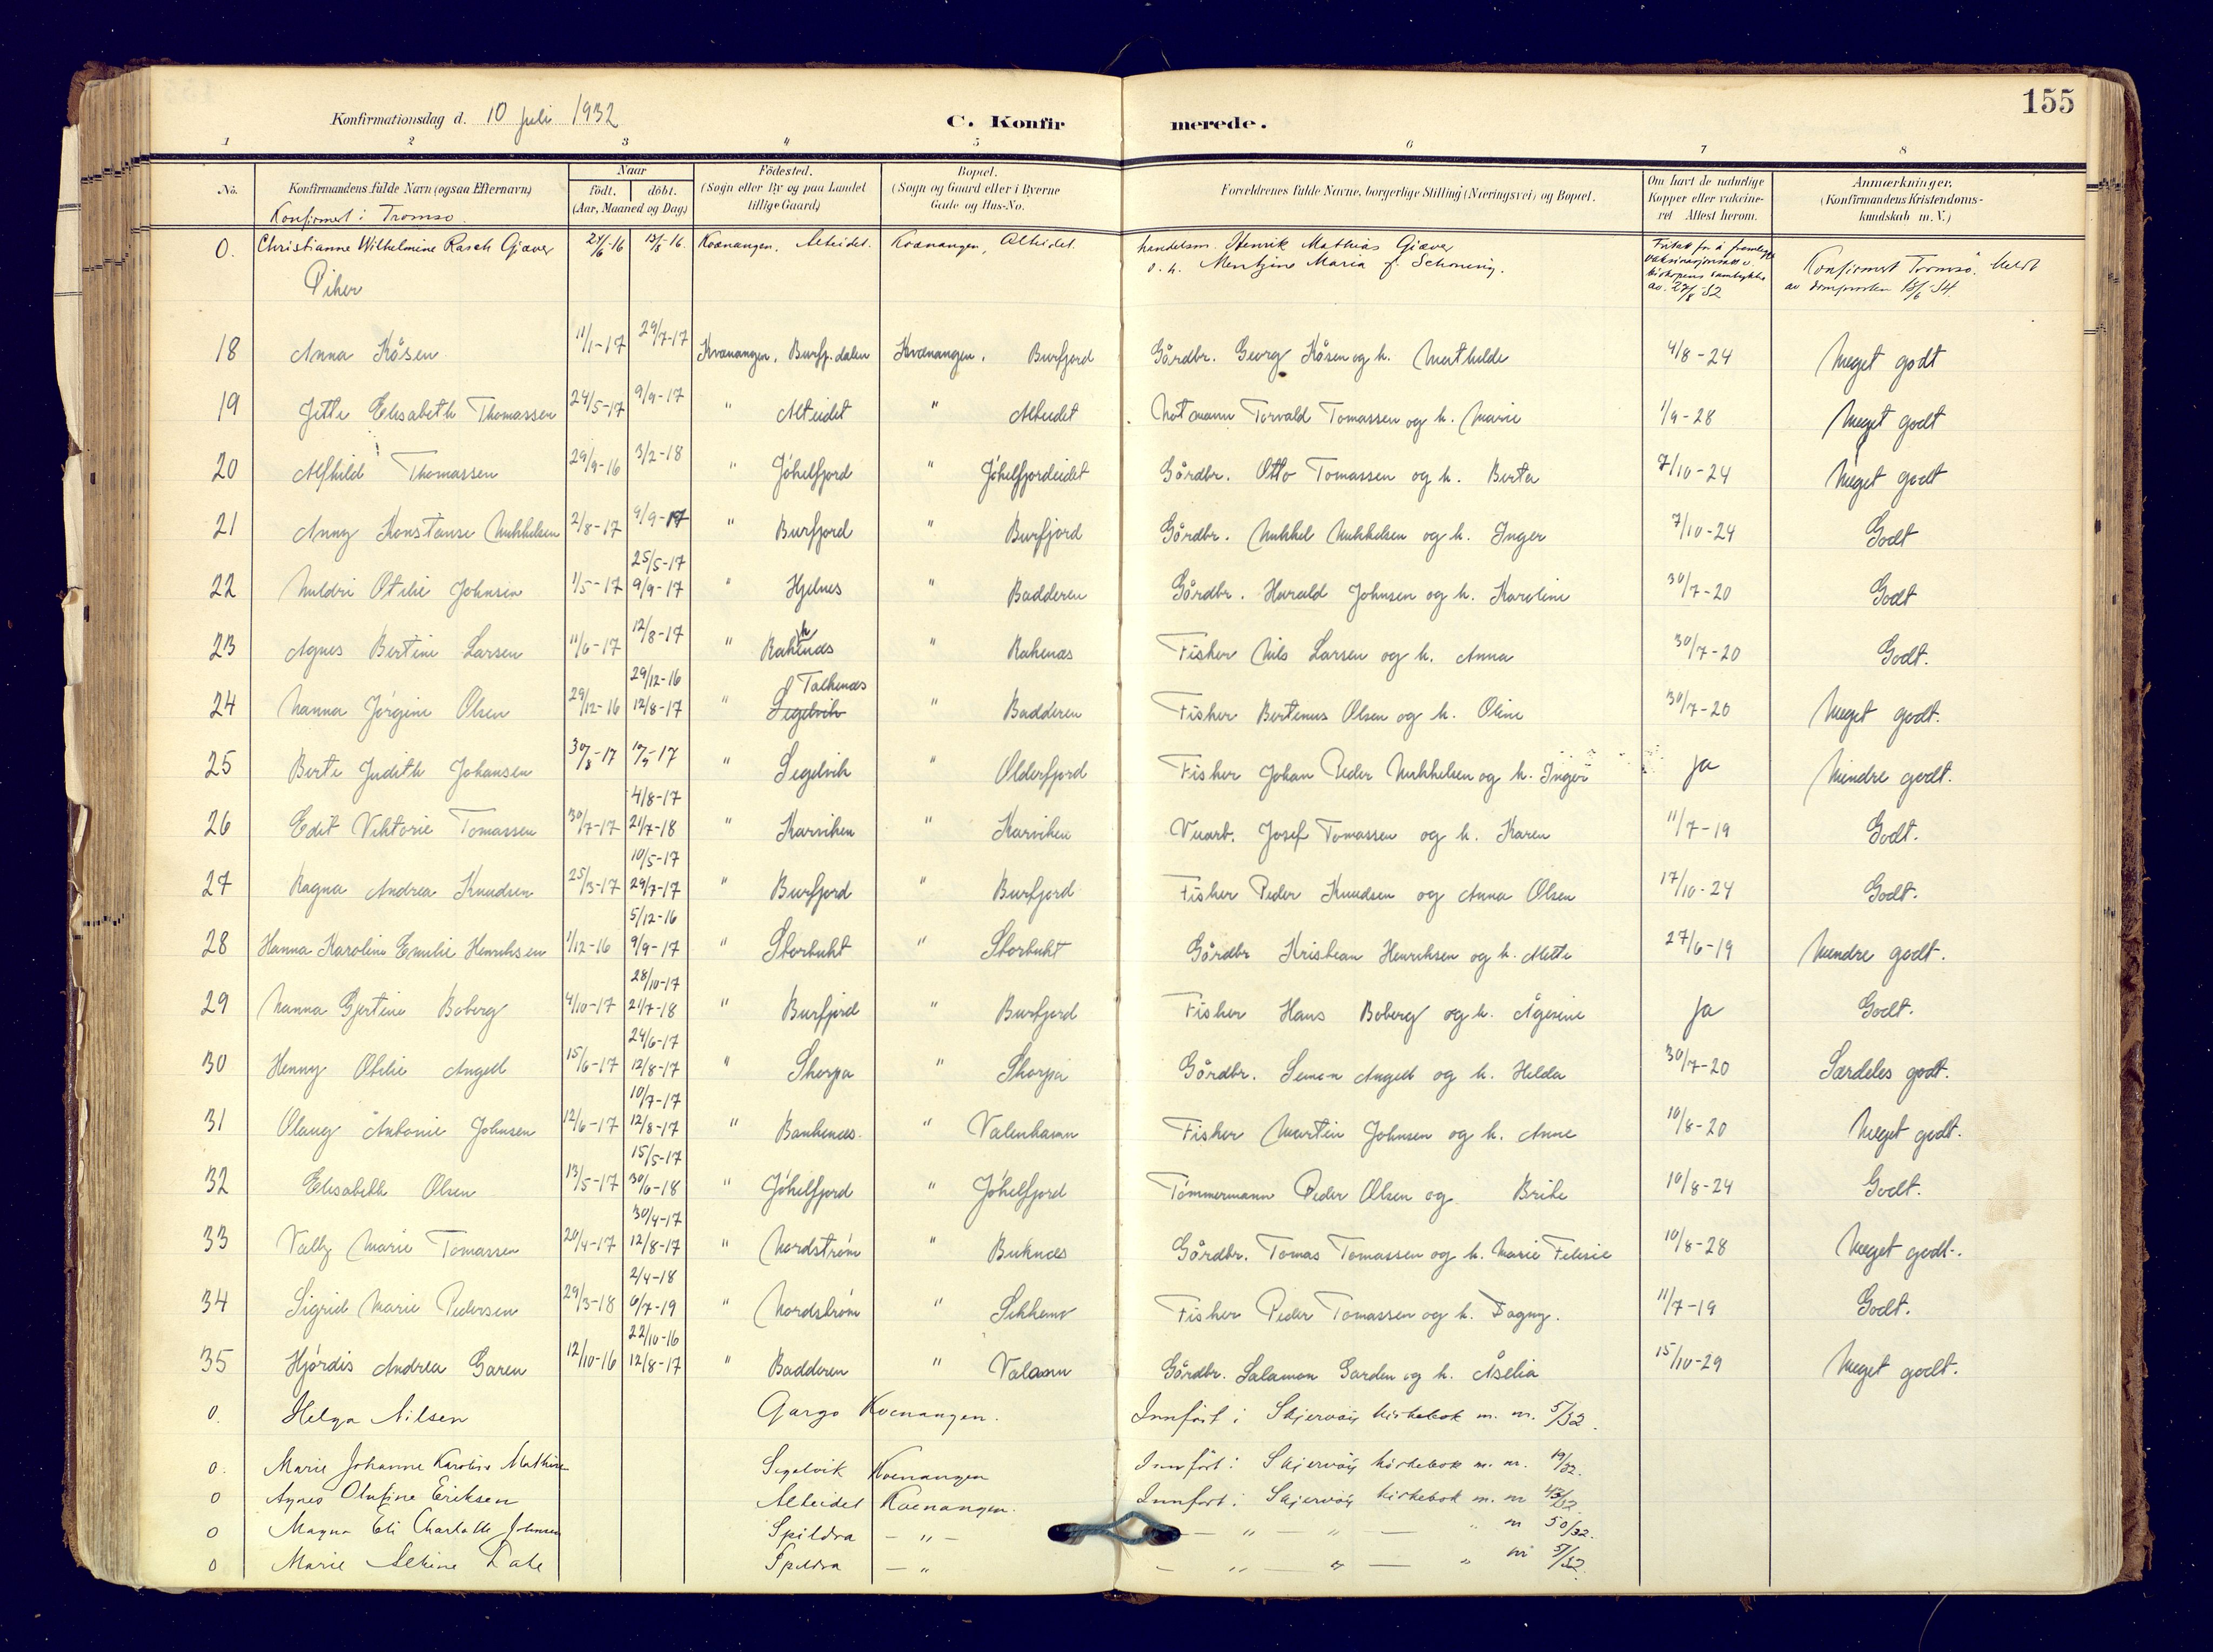 155
Konfirmationsdag d. 10 juli 1932
C. Konfirmerede.
1 2 3 4 5 6 7 8
No. Konfirmandens fulde Navn (ogsaa Efternavn) Naar født. døbt. (Aar, Maaned og Dag) Fødested. (Sogn eller By og paa Landet tillige Gaard) Bopæl. (Sogn og Gaard eller i Byerne Gade og Hus-No. Forældrenes fulde Navne, borgerlige Stilling (Næringsvei) og Bopæl. Om havt de naturlige Kopper eller vakcineret Attest herom. Anmærkninger. (Konfirmandens Kristendomskundskab m. V.)
Konfirmert i Tromsø.
0. Christianne Wilhelmine Rasch Giæver -16 -16. Kvænangen, Alteidet. Kvænangen, Alteidet. handelsm. Henrik Mathias Giæver Fritatt for å
o. h. Mentzine Maria f. Schøning. av 27/8-32 Konfirmert Tromsø. Meldt av domprosten 18/6-34.
Piker
18 Anna Kåsen 11/1-17 29/7-17 Kvænangen, Burfj.dalen Kvænangen, Burfjord Gårdbr. Georg Kåsen og h. Mathilde 4/8-24 Meget godt
19 Jette Elisabeth Thomassen 24/5-17 9/9-17 " Alteidet " Alteidet Notmann Torvald Tomassen og h. Marie 1/9-28 Meget godt
20 Alfhild Thomassen 29/9-16 3/2-18 " Jøkelfjord " Jøkelfjordeidet Gårdbr. Otto Tomassen og h. Berta 7/10-24 Meget godt
21 Anny Konstanse Mikkelsen 2/8-17 9/9-17 " Burfjord " Burfjord Gårdbr. Mikkel Mikkelsen og h. Inger 7/10-24 Godt
25/5-17
22 Mildri Otilie Johnsen 1/5-17 9/9-17 " Hjelnes " Badderen Gårdbr. Harald Johnsen og h. Karoline 30/7-20 Godt
23 Agnes Bertine Larsen 11/6-17 12/8-17 " Rakenæs " Rakenæs Fisker Nils Larsen og h. Anna 30/7-20 Godt.
29/12-16 Talkenæs
24 Nanna Jørgine Olsen 29/12-16 12/8-17 " Segelvik " Badderen Fisker Bertinus Olsen og h. Oline 30/7-20 Meget godt.
25 Berte Judith Johansen 30/8-17 -17 " Segelvik " Olderfjord Fisker Johan Peder Mikkelsen og h. Inger ja Mindre godt.
4/8-17
26 Edit Viktorie Tomassen 30/7-17 21/7-18 " Karviken " Karviken Vuarb. Josef Tomassen og h. Karen 11/7-19 Godt.
10/5-17
27 Ragna Andrea Knudsen 25/3-17 29/7-17 " Burfjord " Burfjord Fisker Peder Knudsen og Anna Olsen 17/10-24 Godt.
5/12-16
28 Hanna Karoline Emilie Henriksen 1/12-16 9/9-17 " Storbukt " Storbukt Gårdbr Kristean Henriksen og h. Mette 27/6-19 Mindre godt.
28/10-17
29 Nanna Gjertine Boberg 4/10-17 21/7-18 " Burfjord " Burfjord Fisker Hans Boberg og h. Ågesine ja Godt.
24/6-17
30 Henny Otilie Angell 15/6-17 12/8-17 " Skorpa " Skorpa Gårdbr. Simon Angell og h. Helda 30/7-20 Særdeles godt.
10/7-17
31 Olaug Antonie Johnsen 12/6-17 12/8-17 " Bankenæs. " Valenhamn Fisker Martin Johnsen og h. Anne 10/8-20 Meget godt.
15/5-17
32 Elisabeth Olsen 13/5-17 30/6-18 " Jøkelfjord " Jøkelfjord Tømmermann Peder Olsen og Brite 10/8-24 Godt.
30/4-17
33 Vally Marie Tomassen 20/4-17 12/8-17 " Nordstrøm " Buknæs Gårdbr. Tomas Tomassen og h. Marie Felisie 10/8-28 Meget godt.
2/4-18
34 Sigrid Marie Pedersen 29/3-18 6/7-19 " Nordstrøm " Sekkemo Fisker Peder Tomassen og h. Dagny. 11/7-19 Godt.
22/10-16
35 Hjørdis Andrea Garen 12/10-16 12/8-17 " Badderen " Valamn Gårdbr. Salamon Garden og h. Åselia 15/10-29 Meget godt.
0. Helga Nilsen Gargo Kvænangen. Innført i Skjervøy kirkebok m. nr. 5/32.
0. Marie Johanne Karoline Mathisen Segelvik Kvænangen Innført i Skjervøy kirkebok m. nr. 19/32.
0 Agnes Olufine Eriksen Alteidet Kvænangen. Innført i Skjervøy kirkebok m. nr 43/32
0 Magna Eli Charlotte Johnsen Spildra — " — — " — " — " nr 50/32.
0 Marie Alvine Spildra — " — " — " — " nr 51/32.